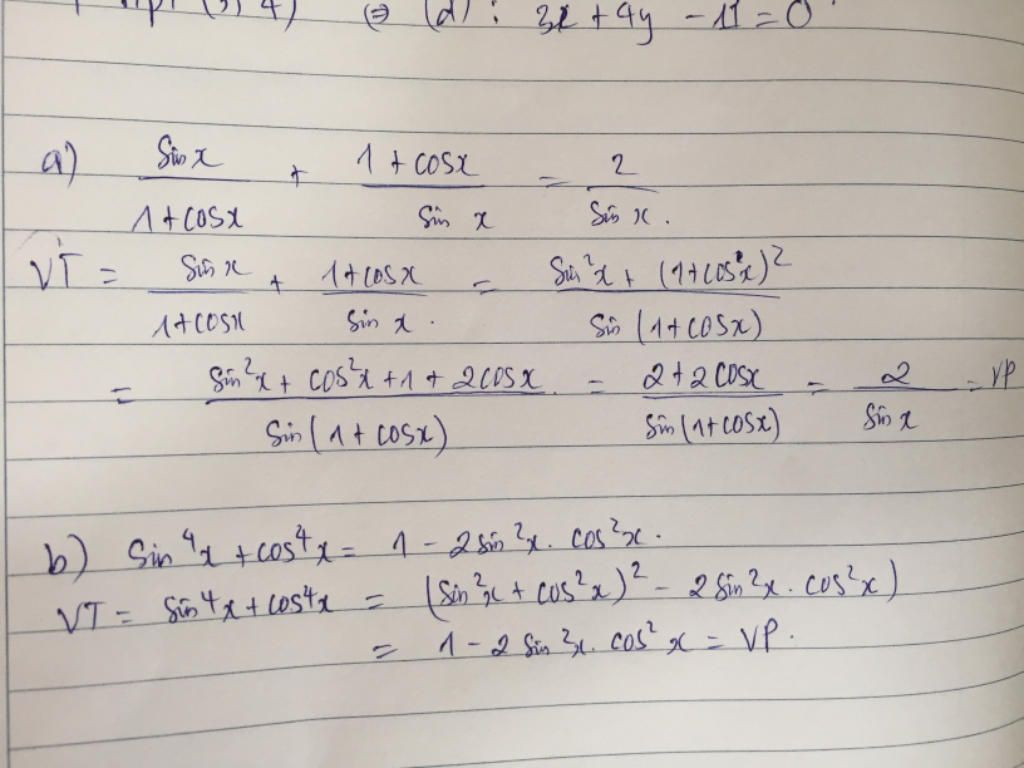 (3, 4) ⇒ (d) : 3x + 4y - 11 = 0
a) sin x / 1 + cos x + 1 + cos x / sin x = 2 / sin x.
VT = sin x / 1 + cos x + 1 + cos x / sin x . = sin²x + (1 + cos²x)² / sin (1 + cos x)
= sin²x + cos²x + 1 + 2 cos x / sin (1 + cos x) = 2 + 2 cos x / sin (1 + cos x) = 2 / sin x = VP
b) sin⁴x + cos⁴x = 1 - 2 sin²x . cos²x .
VT = sin⁴x + cos⁴x = (sin²x + cos²x)² - 2 sin²x . cos²x)
= 1 - 2 sin²x . cos²x = VP .